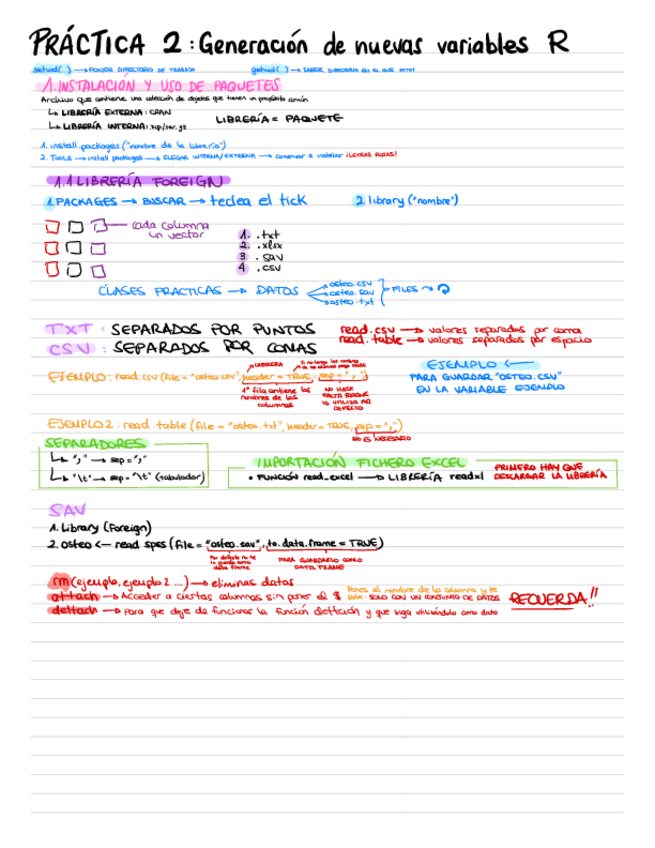 PRÁCTICA 2: Generación de nuevas variables R
setwd( ) → PONER DIRECTORIO DE TRABAJO getwd( ) → SABER DIRECTORIO EN EL QUE ESTOY
1. INSTALACIÓN Y USO DE PAQUETES
Archivo que contiene una colección de objetos que tienen un propósito común
↳ LIBRERÍA EXTERNA: CRAN
LIBRERÍA = PAQUETE
↳ LIBRERÍA INTERNA: zip/tar.gz
1. install.packages ("nombre de la librería")
2. Tools → install packages → ELEGIR INTERNA/EXTERNA → comenzar a instalar ¡LETRAS ROJAS!
1.1 LIBRERÍA FOREIGN
1. PACKAGES → BUSCAR → teclea el tick 2. library ("nombre")
cada columna
un vector
1. .txt
2. .xlsx
3 .sav
4 .csv
CLASES PRÁCTICAS → DATOS
osteo.csv
osteo.sav
osteo.txt
FILES →
TXT: SEPARADOS POR PUNTOS
read.csv → valores separados por coma
CSV: SEPARADOS POR COMAS
read.table → valores separados por espacio
CABECERA
EJEMPLO: read.csv (file = "osteo.csv", header = TRUE, sep = ",")
1ª fila contiene los
nombres de las
columnas
NO HACE
FALTA PORQUE
LO UTILIZA POR
DEFECTO
EJEMPLO ←
PARA GUARDAR "OSTEO.CSV"
EN LA VARIABLE EJEMPLO
EJEMPLO 2: read.table (file = "osteo.txt", header = TRUE, sep = ";")
NO ES NECESARIO
SEPARADORES
↳ ";" → sep = ";"
↳ "\t" → sep = "\t" (tabulador)
IMPORTACIÓN FICHERO EXCEL
• FUNCIÓN read_excel → LIBRERÍA readxl
PRIMERO HAY QUE
DESCARGAR LA LIBRERÍA
SAV
1. Library (Foreign)
2. osteo <- read spss (file = "osteo.sav", to.data.frame = TRUE)
PARA GUARDARLO COMO
DATA FRAME
rm (ejemplo, ejemplo 2 ...) → eliminas datos
attach → Acceder a ciertas columnas sin poner el $ Pones el nombre de la columna y te
sale: SOLO CON UN CONJUNTO DE DATOS
RECUERDA!!
dettach → Para que deje de funcionar la función dettach y que siga utilizándolo como dato